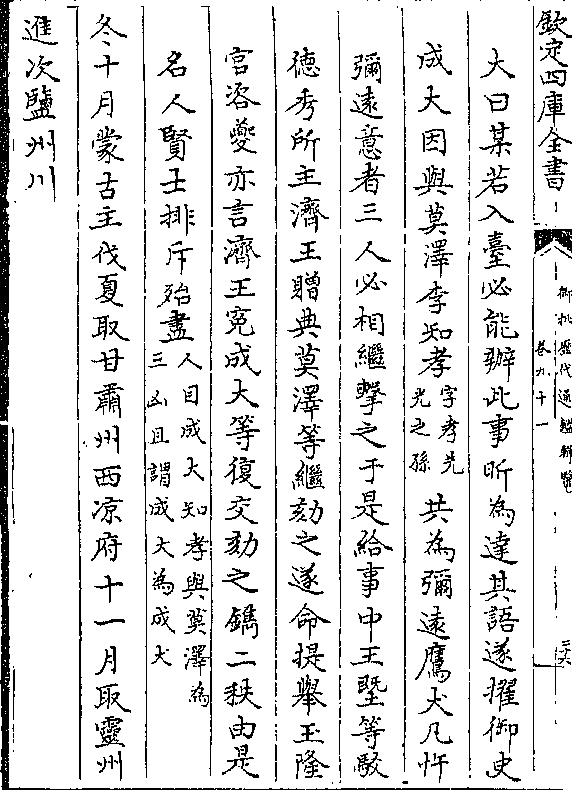 欽定四庫全書
御批歷代通鑑輯覽
卷九十一
三六
大曰某若入臺必能辦此事昕為達其語遂擢御史
成大因與莫澤李知孝字孝先光之孫共為彌遠鷹犬凡忤
彌遠意者三人必相繼擊之于是給事中王塈等駁
德秀所主濟王贈典莫澤等繼劾之遂命提舉玉隆
宮咨夔亦言濟王冤成大等復交劾之鐫二秩由是
名人賢士排斥殆盡人目成大知孝與莫澤為三凶且謂成大為成犬
冬十月蒙古主伐夏取甘肅州西凉府十一月取靈州
進次鹽州川